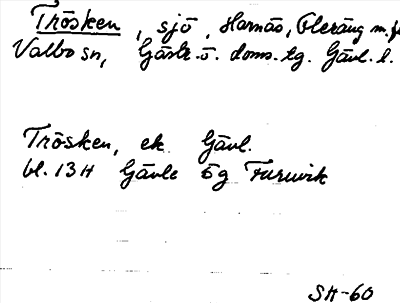 Trösken, sjö, Harnäs, Fleräng m.fl
Valbo sn, Gästr. ö. doms. tg. Gävl. l.
Trösken, ek. Gävl.
bl. 13H Gävle 5g Furuvik
SH-60